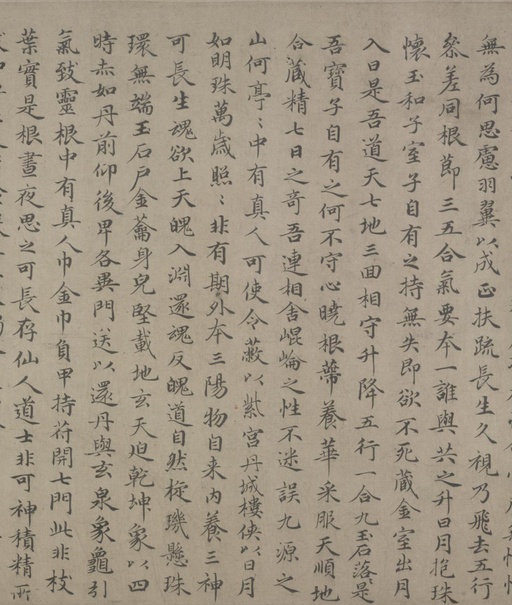 無為何思慮羽翼以成正扶疏長生久視乃飛去五行
參差同根節三五合氣要本一誰與共之升日月抱珠
懷玉和子室子自有之持無失即欲不死藏金室出月
入日是吾道天七地三回相守升降五行一合九玉石落是
吾寶子自有之何不守心曉根蔕養華采服天順地
合藏精七日之奇吾連相舍崐崘之性不迷誤九源之
山何亭〻中有真人可使令蔽以紫宮丹城樓俠以日月
如明珠萬歲照〻非有期外本三陽物自来内養三神
可長生魂欲上天魄入淵還魂反魄道自然㨁璣懸珠
環無端玉石戶金蘥身完堅載地玄天迫乾坤象以四
時赤如丹前仰後卑各異門送以還丹與玄泉象龜引
氣致靈根中有真人巾金巾負甲持苻開七門此非枝
葉實是根晝夜思之可長存仙人道士非可神積精所